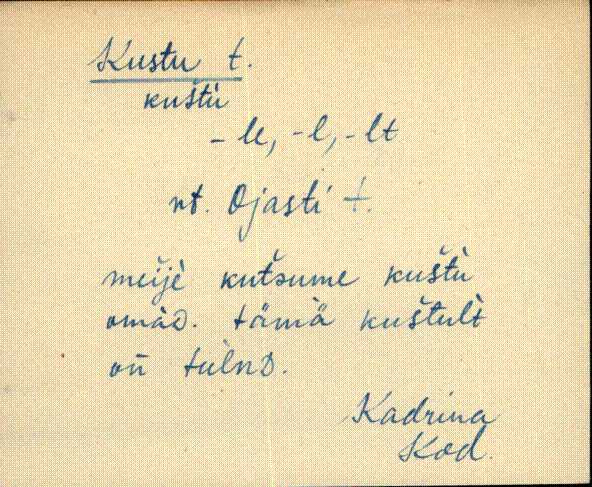 Kustu t.
kuštù
- le, -l, - lt
nt. Ojasti t.
meijè kutsume kuštù
omàD. tämä kuštult
on̄ tulnD.
Kadrina
Kod.